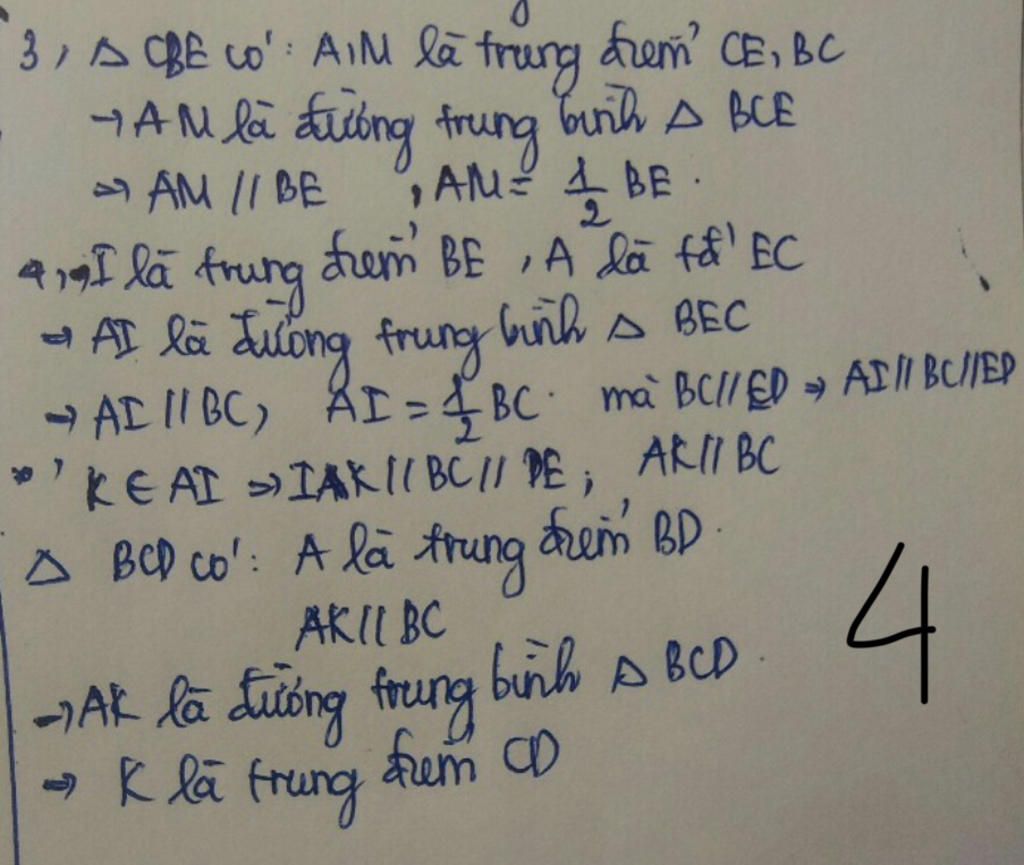 3, Δ CBE có: A,M là trung điểm CE, BC
→ AM là đường trung bình Δ BCE
⇒ AM // BE , AM = 1/2 BE.
4, I là trung điểm BE, A là tđ EC
⇒ AI là đường trung bình Δ BEC
→ AI // BC, AI = 1/2 BC. mà BC // ED ⇒ AI // BC // ED
K ∈ AI ⇒ IAK // BC // DE; AK // BC
Δ BCD có: A là trung điểm BD.
AK // BC
→ AK là đường trung bình Δ BCD.
⇒ K là trung điểm CD
4